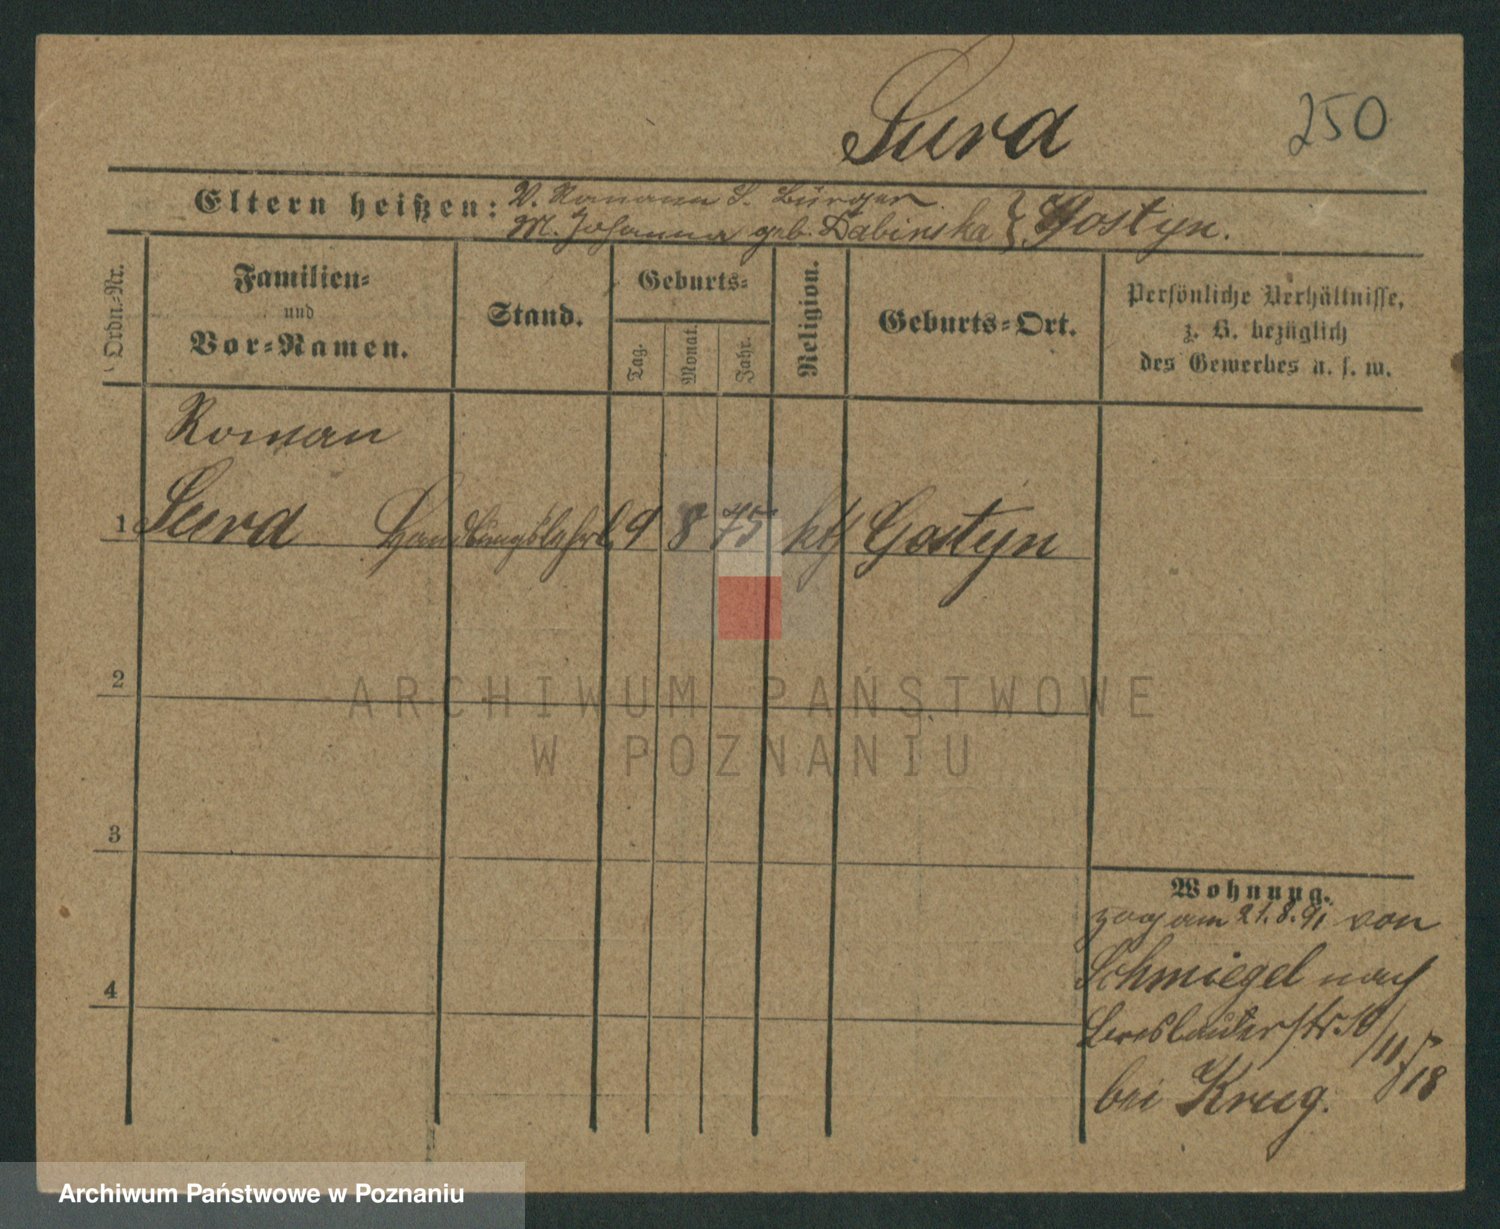 Surd
250
Eltern heißen: V. Roman S. Bürger
M. Johanna geb. Dabinska } Gostyn.
Ordn.-Nr.
Familien-
und
Vor-Namen.
Stand.
Geburts-
Tag.
Monat.
Jahr.
Religion.
Geburts-Ort.
Persönliche Verhältnisse,
z. B. bezüglich
des Gewerbes u. s. w.
Roman
1 Surd Handlungslehrl. 9 8 75 kth Gostyn
2
3
4
Wohnung.
zog am 21.8.91 von
Schmiegel nach
Breslauerstr.
bei Krug.
ARCHIWUM PAŃSTWOWE
W POZNANIU
Archiwum Państwowe w Poznaniu